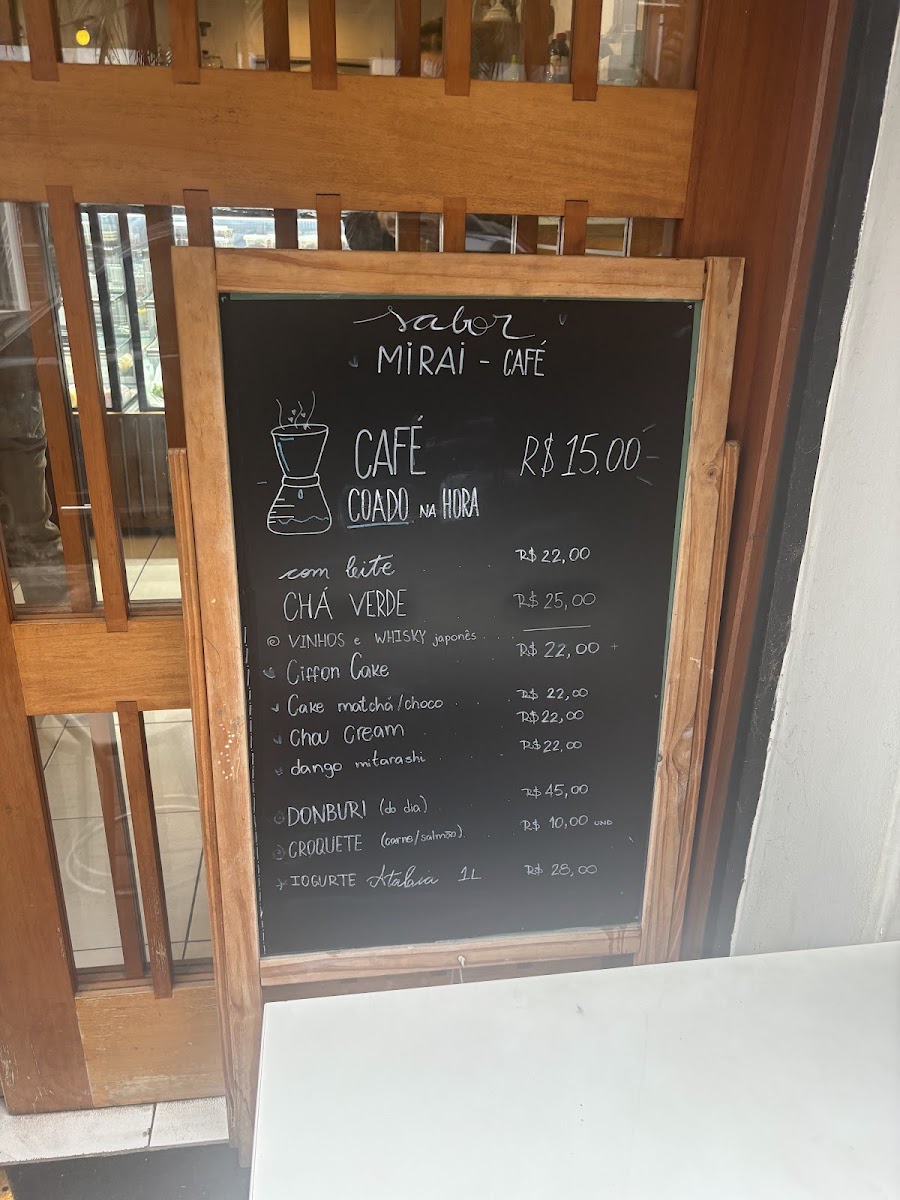 sabor
MIRAI - CAFÉ
CAFÉ R$15.00
COADO NA HORA
com leite R$22,00
CHÁ VERDE R$25,00
VINHOS e WHISKY japonês
Ciffon Cake R$22,00
Cake matchá/choco R$22,00
Chou Cream R$22,00
dango mitarashi R$22,00
DONBURI (do dia) R$45,00
CROQUETE (carne/salmão) R$10,00 UND
IOGURTE Atalaia 1L R$28,00